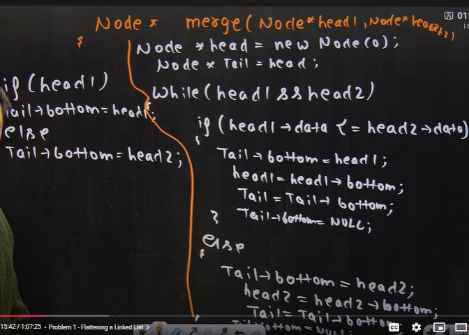 Node * merge(Node*head1, Node*head2)
{
Node *head = new Node(0);
Node * Tail = head;
while(head1 && head2)
{
if (head1→data <= head2→data)
{
Tail→bottom = head1;
head1 = head1→bottom;
Tail = Tail→bottom;
Tail→bottom = NULL;
}
else
{
Tail→bottom = head2;
head2 = head2→bottom;
Tail = Tail→bottom
bottom = NULL;
if (head1)
Tail→bottom = head1;
else
Tail→bottom = head2;
15:42 / 1:07:25 • Problem 1 - Flattening a Linked List >